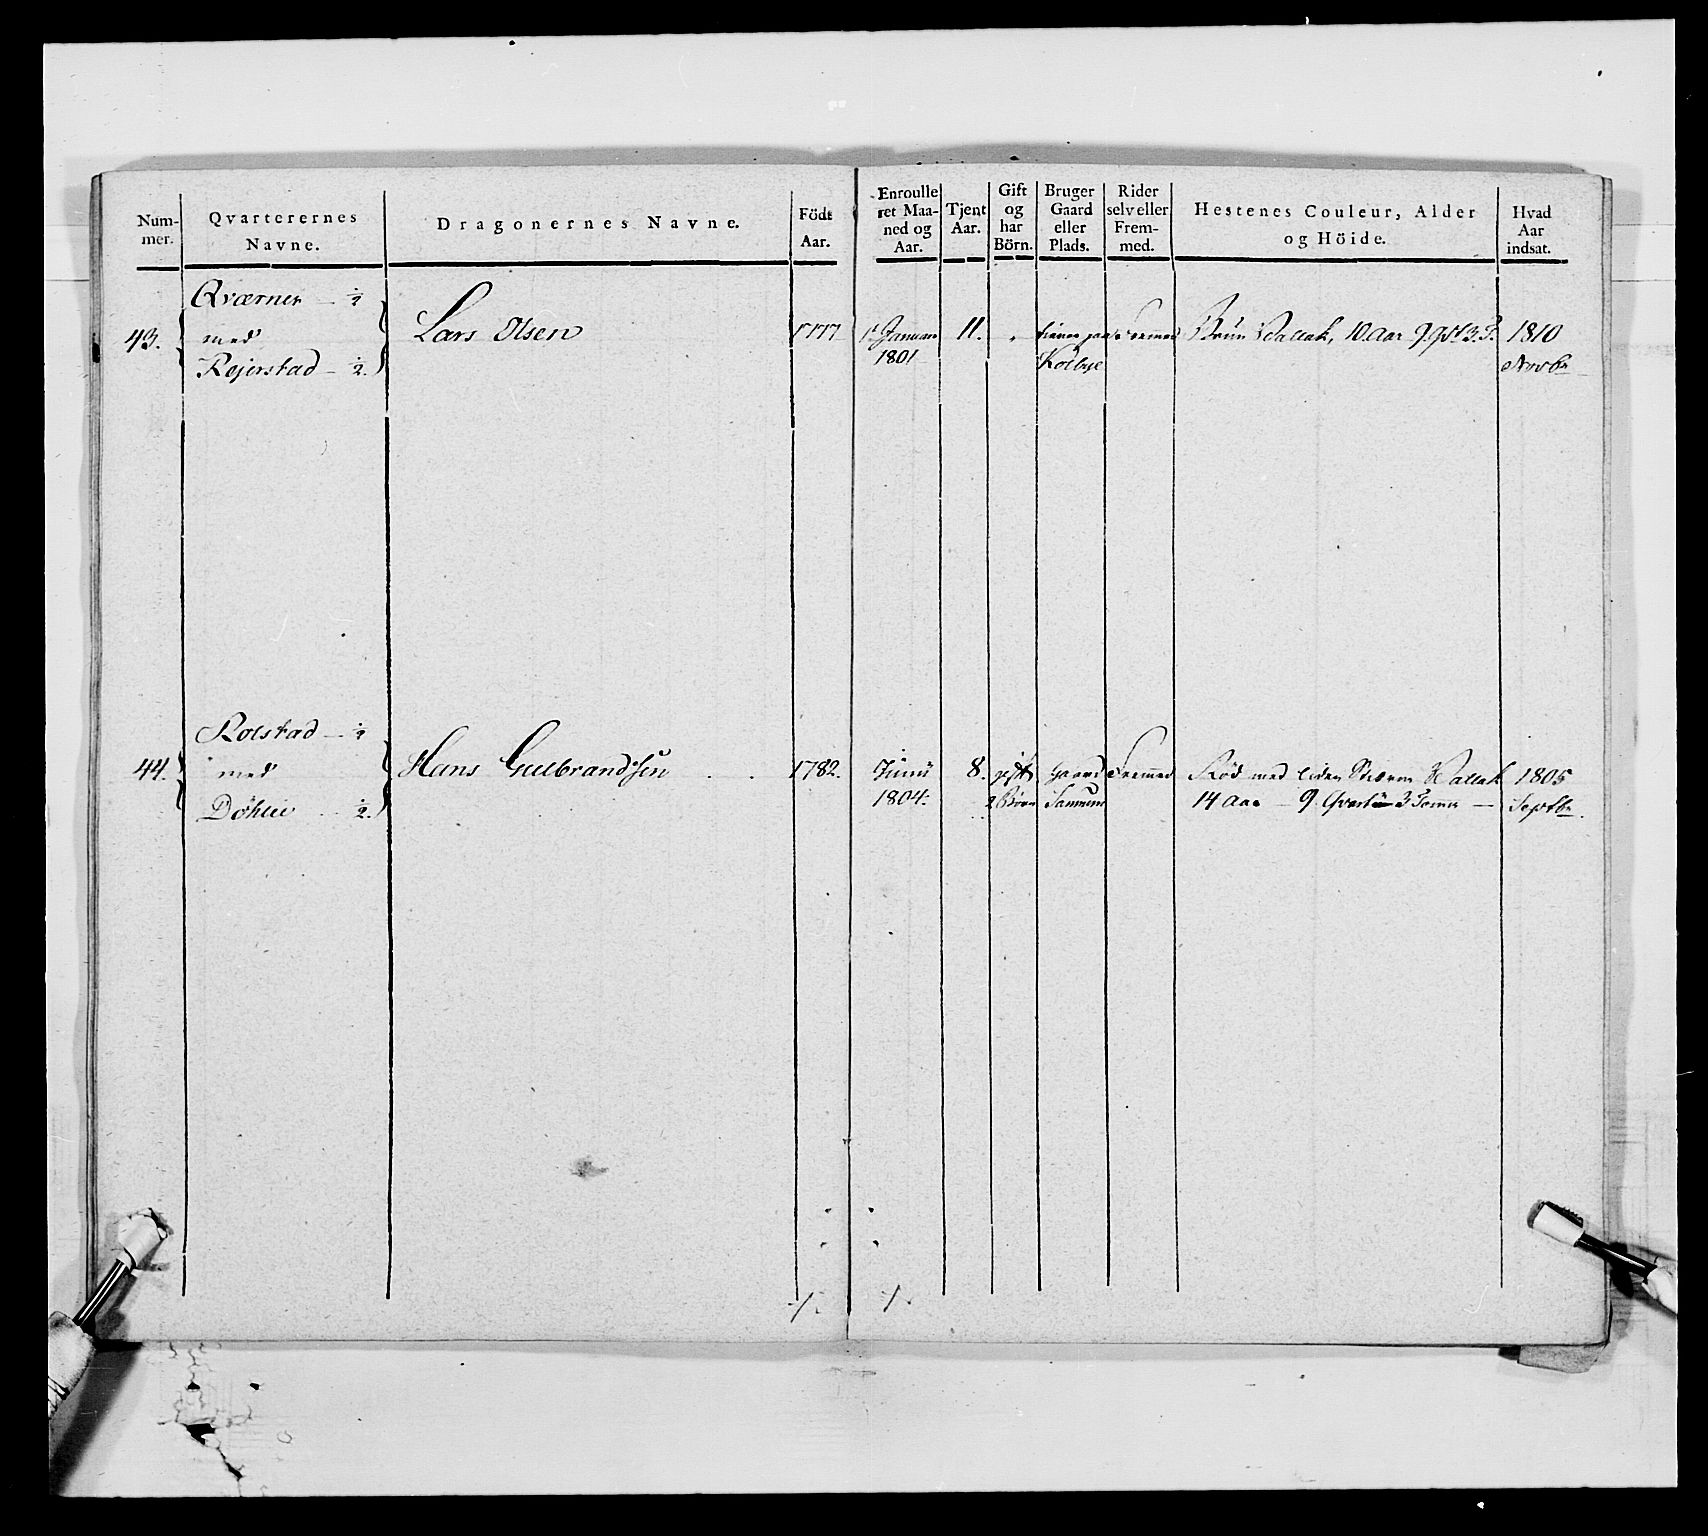 Num-
mer.
Qvarterernes
Navne.
Dragonernes Navne.
Födt
Aar.
Enroulle
ret Maa-
ned og
Aar.
Tjent
Aar.
Gift
og
har
Börn.
Bruger
Gaard
eller
Plads.
Rider
selv eller
Frem-
med.
Hestenes Couleur, Alder
og Höide.
Hvad
Aar
indsat.
Qværner — ½
43. med
Rejerstad — ½.
Lars Olsen
1777
1. Januar
1801
11.
tiener paa
Kolbye
Fremed
Brun Vallak, 10 Aar 9 Qrt 3. T.
1810
Novbr
Rolstad — ½
44. med
Döhlie . . ½.
Hans Gulbrandsen . .
1782.
Junii
1804.
8.
gift
2 Börn
Gaard
Fremmed
Röd med liden Stierne Vallak
14 Aar — 9 Qvarter 3 Tomr —
1805
Septbr.
./.
./.